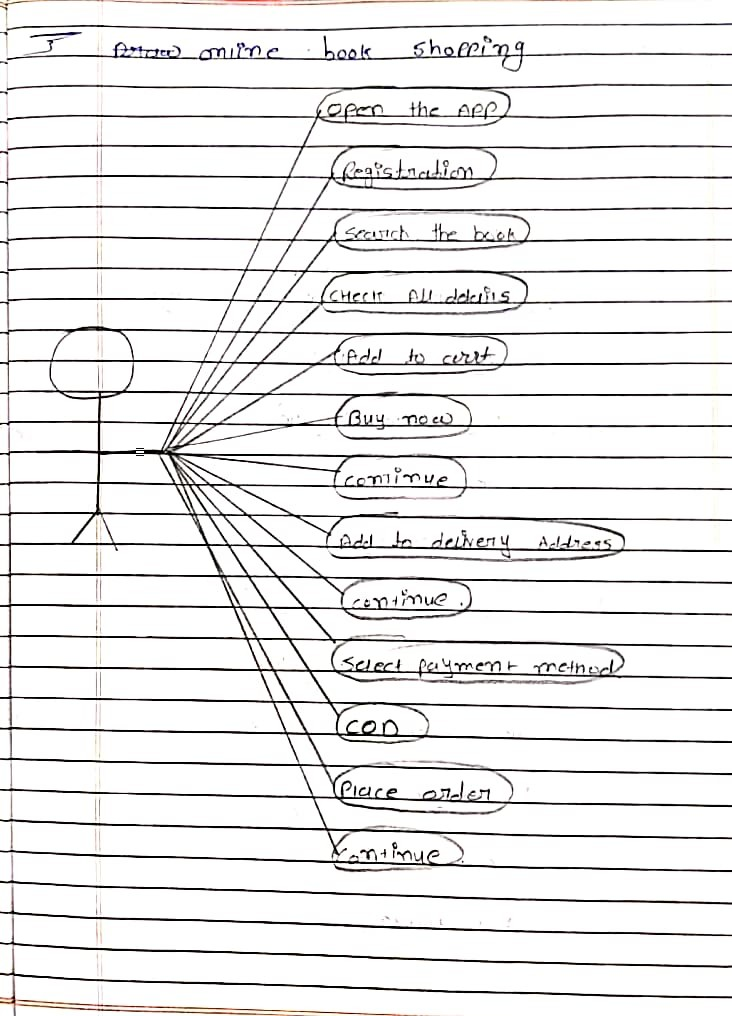 online book shopping
Open the App
Registration
Search the book
Check All details
Add to cart
Buy now
continue
Add to delivery Address
continue.
Select payment method
COD
Place order
Continue